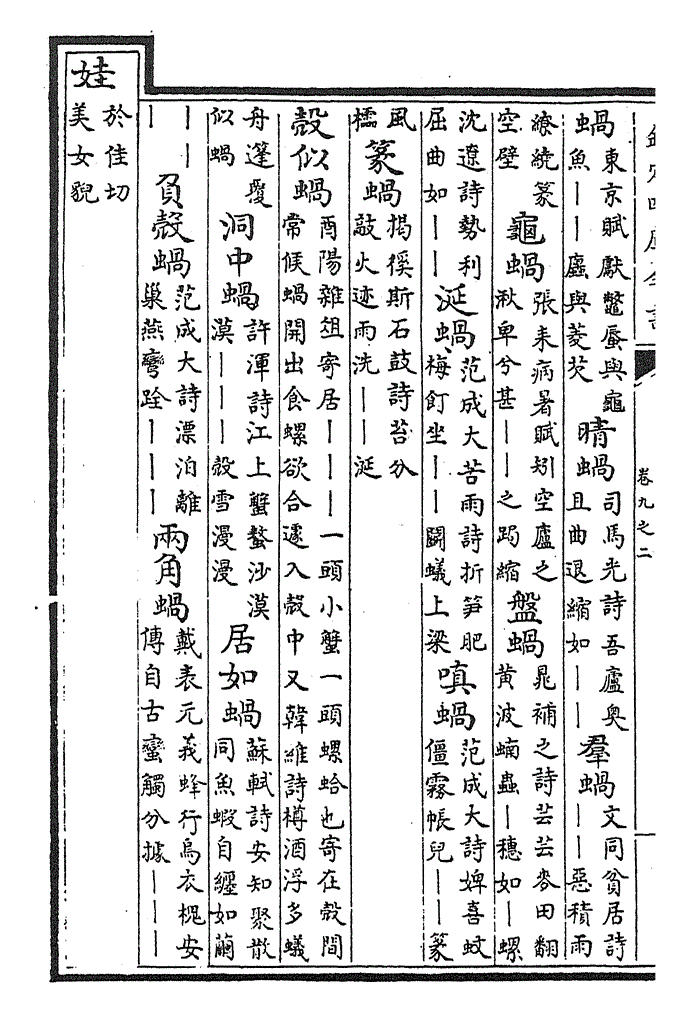 欽定四庫全書
卷九之二
蝸東京賦獻鼈蜃與龜魚——蠯與菱芡 晴蝸司馬光詩吾廬奥且曲退縮如—— 羣蝸文同貧居詩——惡積雨
繚繞篆空壁 龜蝸張耒病暑賦矧空廬之湫卑兮甚——之跼縮 盤蝸晁補之詩芸芸麥田翻黄波蝻蟲—穗如—螺
沈遼詩勢利屈曲如—— 涎蝸范成大苦雨詩折笋肥梅飣坐——鬭蟻上梁 嗔蝸范成大詩婢喜蚊僵霧帳兒——篆
風檽 篆蝸揭傒斯石鼓詩苔分敲火迹雨洗——涎
殻似蝸酉陽雜俎寄居———一頭小蟹一頭螺蛤也寄在殻間常候蝸開出食螺欲合遽入殻中又韓維詩樽酒浮多蟻
舟蓬覆似蝸 洞中蝸許渾詩江上蟹螯沙漠漠———殻雪漫漫 居如蝸蘇軾詩安知聚散同魚蝦自纏如繭
——— 負殻蝸范成大詩漂泊離巢燕彎跧——— 兩角蝸戴表元義蜂行烏衣槐安傳自古蠻觸分據———
娃於佳切美女貌